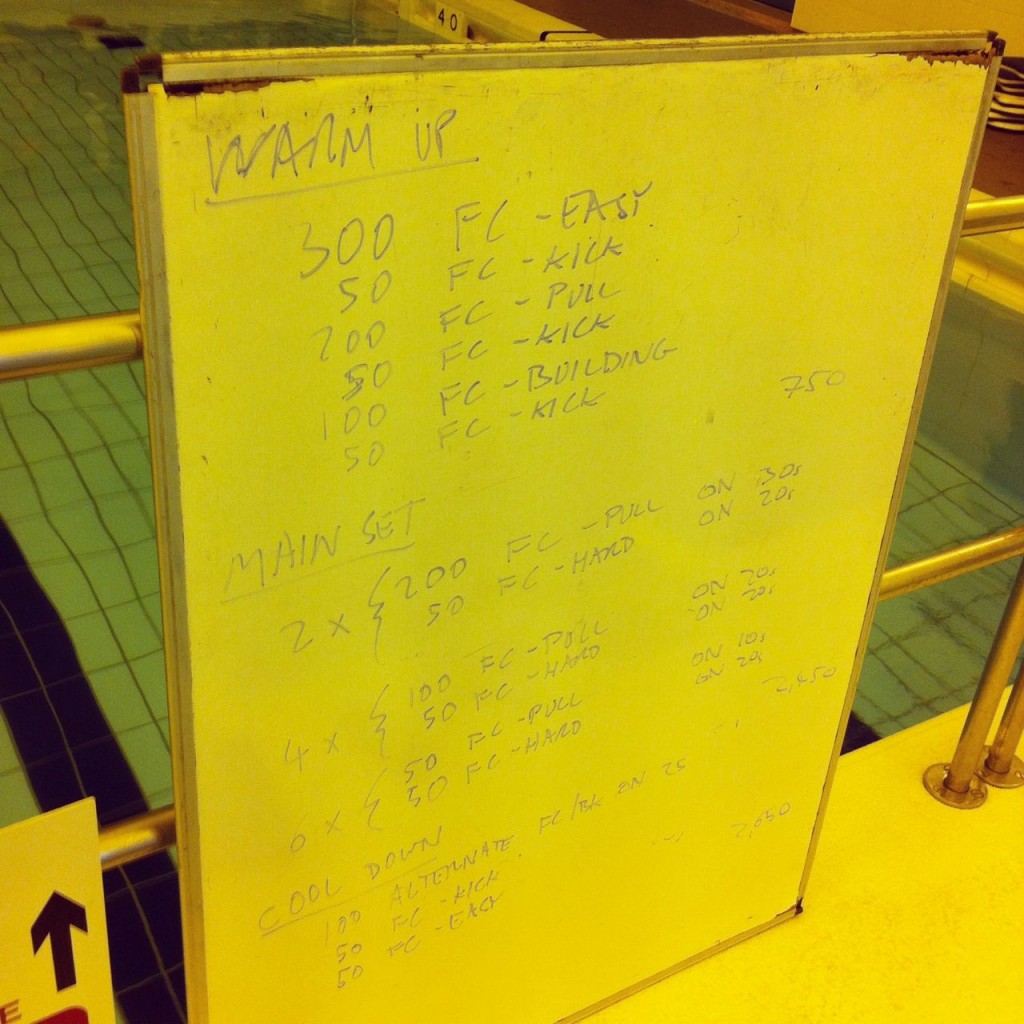 40
WARM UP
300 FC - EASY
50 FC - KICK
200 FC - PULL
50 FC - KICK
100 FC - BUILDING
50 FC - KICK
750
MAIN SET
2 x { 200 FC - PULL ON 30s
50 FC - HARD ON 20s
4 x { 100 FC - PULL ON 20s
50 FC - HARD ON 20s
6 x { 50 FC - PULL ON 10s
50 FC - HARD ON 20s
2,450
COOL DOWN
100 ALTERNATE FC/BK ON 25
50 FC - KICK
50 FC - EASY
2,650
E